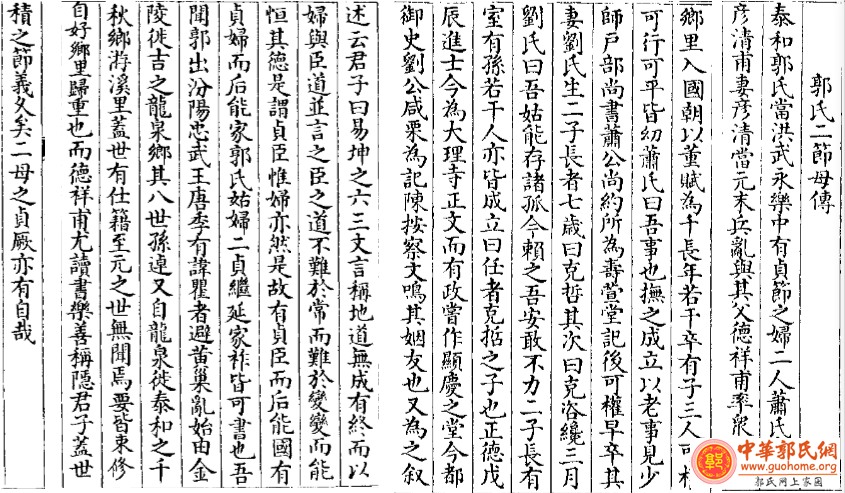 郭氏二節母傳
泰和郭氏當洪武永樂中有貞節之婦二人蕭氏
彥清甫妻彥清當元末兵亂與其父德祥甫率眾
鄉里入國朝以董賦為千長年若干卒有子三人可
可行可平皆幼蕭氏曰吾事也撫之成立以老事見少
師戶部尚書蕭公尚約所為壽萱堂記後可權早卒其
妻劉氏生二子長者七歲曰克哲其次曰克洛纔三月
劉氏曰吾姑能存諸孤今賴之吾安敢不力二子長有
室有孫若干人亦皆成立曰任者克括之子也正德戊
辰進士今為大理寺正文而有政嘗作顯慶之堂今都
御史劉公咸栗為記陳按察文鳴其姻友也又為之叙
述云君子曰易坤之六三文言稱地道無成有終而以
婦與臣道並言之臣之道不難於常而難於變變而能
恒其德是謂貞臣惟婦亦然是故有貞臣而后能國有
貞婦而后能家郭氏姑婦二貞繼延家祚皆可書也吾
聞郭出汾陽忠武王唐季有諱瞿者避黃巢亂始由金
陵徙吉之龍泉鄉其八世孫遑又自龍泉徙泰和之千
秋鄉游溪里蓋世有仕籍至元之世無聞焉要皆束修
自好鄉里歸重也而德祥甫尤讀書樂善稱隱君子蓋世
積之節義久矣二母之貞厥亦有自哉
郭
中華郭氏網
www.guohome.org
郭氏網上家園